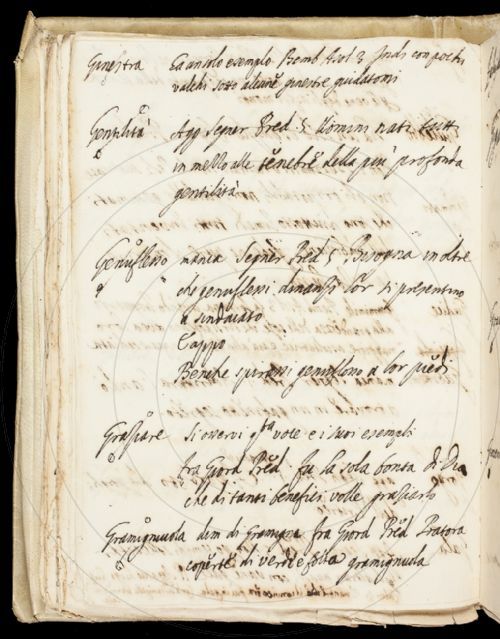 Ginestra Ha un solo esempio. Bemb. Asol. 3. Indi con pochi
valchi sotto alcune ginestre guidatomi
Gentilità Agg. Segner. Pred. 5. Uomini nati tutti
in mezzo alle tenebre della più profonda
gentilità
Genuflesso manca Segner. Pred. 5. Bisogna inoltre
che genuflessi dinanzi lor si presentino
a sindacato
Cappo
Benche genuflesso a lor piedi
Graziare Si osservi qta voce e i suoi esempli
fra Giord. Pred. fu la sola bontà di Dio
che di tanti benefici volle graziarlo
Gramignuola dim. di Gramigna. fra Giord. Pred. Pratora
coperte di verde e folta gramignuola